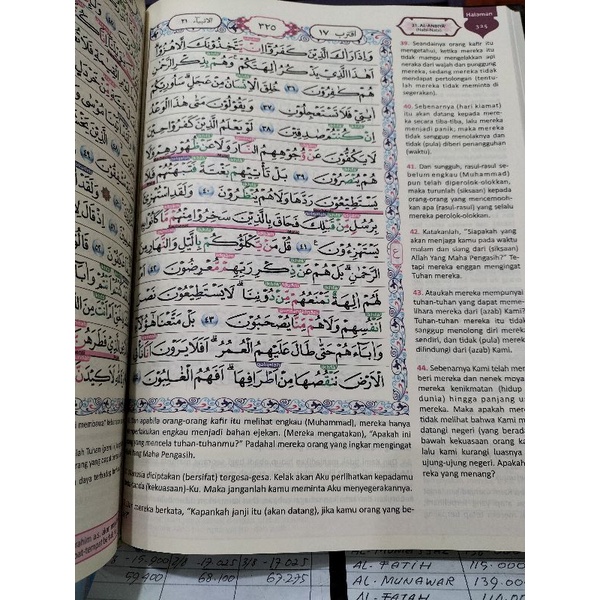 الانبيآء ٢١
٣٢٥
اقترب ١٧
21. Al-Anbiya
(Nabi-Nabi)
Halaman
325
وَاِذَا رَاٰكَ الَّذِيْنَ كَفَرُوْٓا اِنْ يَّتَّخِذُوْنَكَ اِلَّا هُزُوًا
اَهٰذَا الَّذِيْ يَذْكُرُ اٰلِهَتَكُمْ وَهُمْ بِذِكْرِ الرَّحْمٰنِ
هُمْ كٰفِرُوْنَ ٣٦ خُلِقَ الْاِنْسَانُ مِنْ عَجَلٍ سَاُورِيْكُمْ
اٰيٰتِيْ فَلَا تَسْتَعْجِلُوْنِ ٣٧ وَيَقُوْلُوْنَ مَتٰى هٰذَا الْوَعْدُ
اِنْ كُنْتُمْ صٰدِقِيْنَ ٣٨ لَوْ يَعْلَمُ الَّذِيْنَ كَفَرُوْا حِيْنَ
لَا يَكُفُّوْنَ عَنْ وُّجُوْهِهِمُ النَّارَ وَلَا عَنْ ظُهُوْرِهِمْ وَلَا
هُمْ يُنْصَرُوْنَ ٣٩ بَلْ تَأْتِيْهِمْ بَغْتَةً فَتَبْهَتُهُمْ فَلَا
يَسْتَطِيْعُوْنَ رَدَّهَا وَلَا هُمْ يُنْظَرُوْنَ ٤٠ وَلَقَدِ اسْتُهْزِئَ
بِرُسُلٍ مِّنْ قَبْلِكَ فَحَاقَ بِالَّذِيْنَ سَخِرُوْا مِنْهُمْ مَّا كَانُوْا بِهٖ
يَسْتَهْزِءُوْنَ ٤١ قُلْ مَنْ يَّكْلَؤُكُمْ بِالَّيْلِ وَالنَّهَارِ مِنَ
الرَّحْمٰنِ بَلْ هُمْ عَنْ ذِكْرِ رَبِّهِمْ مُّعْرِضُوْنَ ٤٢ اَمْ
لَهُمْ اٰلِهَةٌ تَمْنَعُهُمْ مِّنْ دُوْنِنَا لَا يَسْتَطِيْعُوْنَ نَصْرَ
اَنْفُسِهِمْ وَلَا هُمْ مِّنَّا يُصْحَبُوْنَ ٤٣ بَلْ مَتَّعْنَا هٰٓؤُلَاۤءِ
وَاٰبَاۤءَهُمْ حَتّٰى طَالَ عَلَيْهِمُ الْعُمُرُ اَفَلَا يَرَوْنَ اَنَّا نَأْتِى
الْاَرْضَ نَنْقُصُهَا مِنْ اَطْرَافِهَا اَفَهُمُ الْغٰلِبُوْنَ
39. Seandainya orang kafir itu
mengetahui, ketika mereka itu
tidak mampu mengelakkan api
neraka dari wajah dan punggung
mereka, sedang mereka tidak
mendapat pertolongan (tentu-
lah mereka tidak meminta di
segerakan).
40. Sebenarnya (hari kiamat)
itu akan datang kepada mere-
ka secara tiba-tiba, lalu mereka
menjadi panik, maka mereka
tidak sanggup menolaknya dan
tidak (pula) diberi penangguhan
(waktu).
41. Dan sungguh, rasul-rasul se-
belum engkau (Muhammad)
pun telah diperolok-olokkan,
maka turunlah (siksaan) kepada
orang-orang yang mencemooh-
kan apa (rasul-rasul) yang selalu
mereka perolok-olokkan.
42. Katakanlah, "Siapakah yang
akan menjaga kamu pada waktu
malam dan siang dari (siksaan)
Allah Yang Maha Pengasih?" Te-
tapi mereka enggan mengingat
Tuhan mereka.
43. Ataukah mereka mempunyai
tuhan-tuhan yang dapat meme-
lihara mereka dari (azab) Kami?
Tuhan-tuhan mereka itu tidak
sanggup menolong diri mereka
sendiri, dan tidak (pula) mereka
dilindungi dari (azab) Kami.
44. Sebenarnya Kami telah mem-
beri mereka dan nenek moyang
mereka kenikmatan (hidup di
dunia) hingga panjang usia
mereka. Maka apakah mereka
tidak melihat bahwa Kami men-
datangi negeri (yang berada di
bawah kekuasaan orang kafir),
lalu kami kurangi luasnya dari
ujung-ujung negeri. Apakah me-
reka yang menang?
dan apabila orang-orang kafir itu melihat engkau (Muhammad), mereka hanya
perlakukan engkau menjadi bahan ejekan. (Mereka mengatakan), "Apakah ini
yang mencela tuhan-tuhanmu?" Padahal mereka orang yang ingkar mengingat
Yang Maha Pengasih.
manusia diciptakan (bersifat) tergesa-gesa. Kelak akan Aku perlihatkan kepadamu
(kekuasaan)-Ku. Maka janganlah kamu meminta Aku menyegerakannya.
mereka berkata, "Kapankah janji itu (akan datang), jika kamu orang yang be-
15.900 2/8 - 17.025 3/8 - 17.025
59.400 68.100 67.275
AL - FATIH 115.000
AL - MUNAWAR 139.000
AL - FATAH